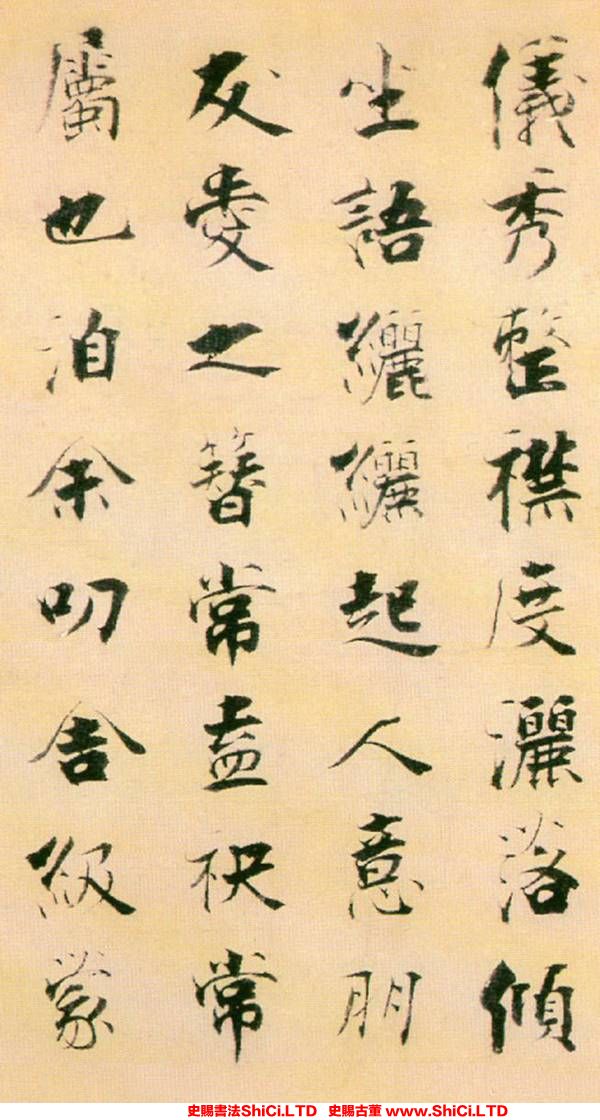 儀秀整襟度灑落傾
坐語纚纚起人意朋
友愛之簪常盍袂常
屬也洎余叨舍級蒙
史賜書法ShiCi.LTD 史賜古董 www.ShiCi.LTD